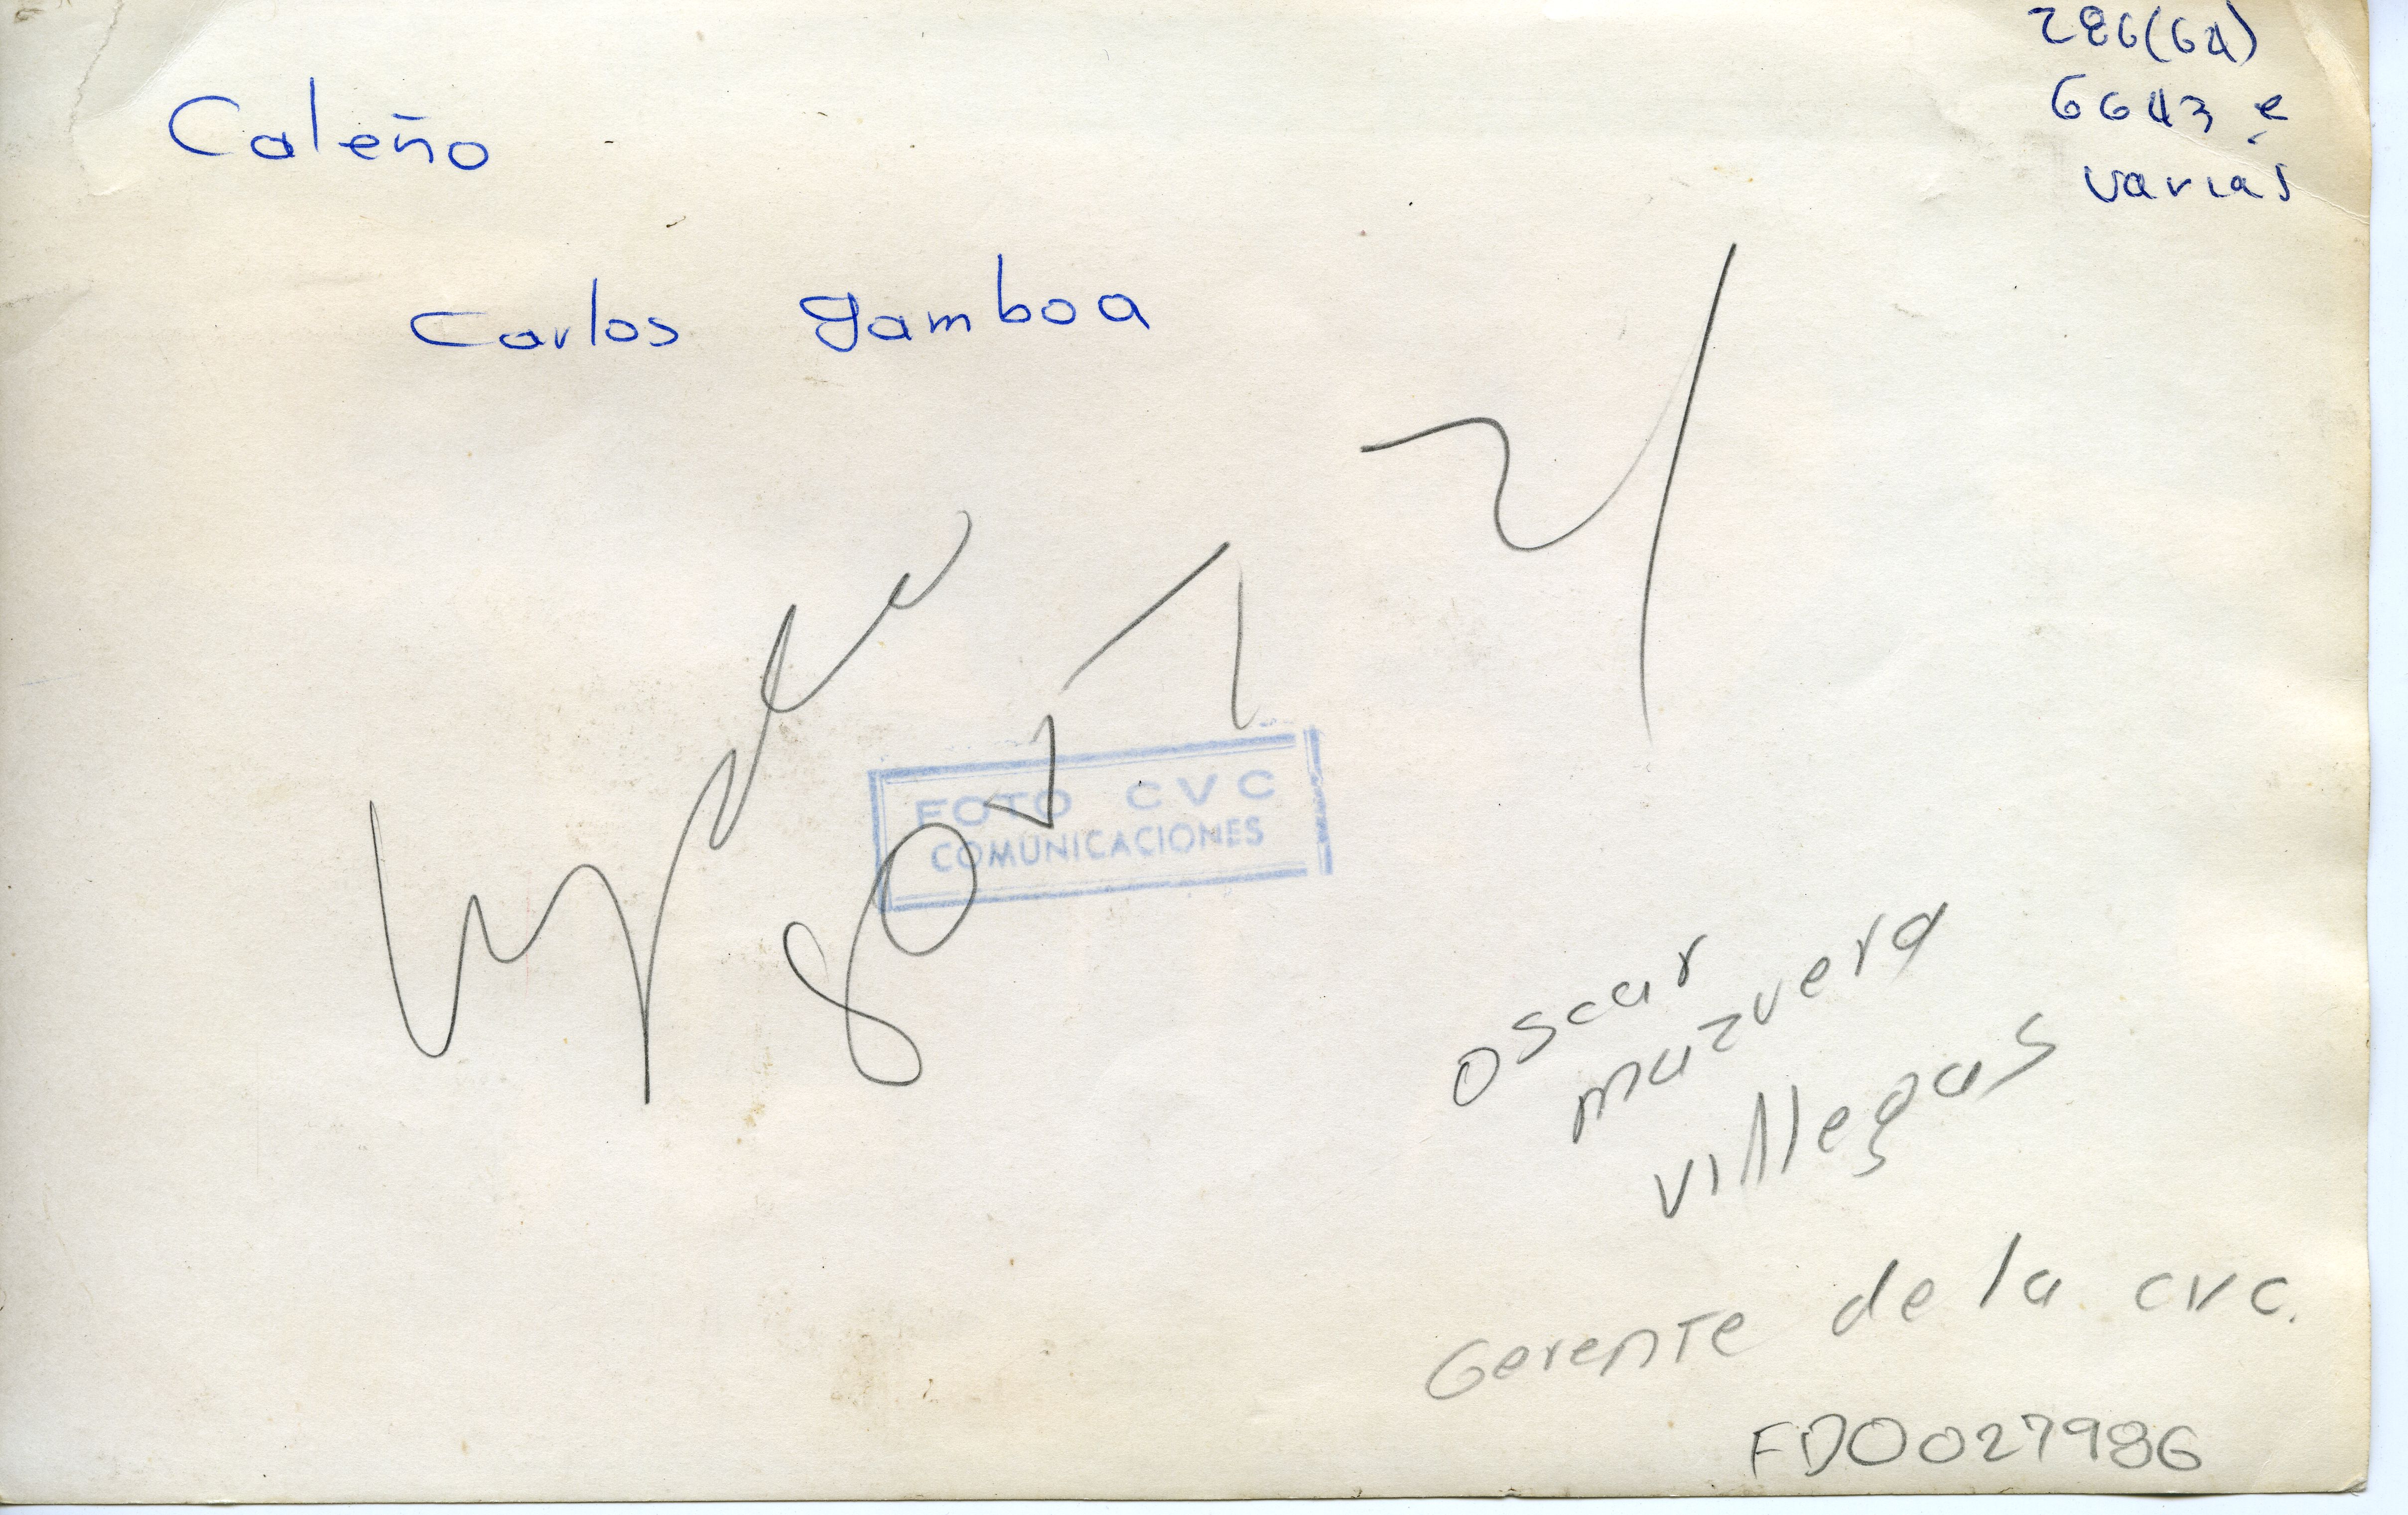 286(64)
6643 e
varias
Caleño
Carlos Gamboa
FOTO CVC
COMUNICACIONES
oscar
mazuera
villegas
Gerente de la CVC.
FD0027986